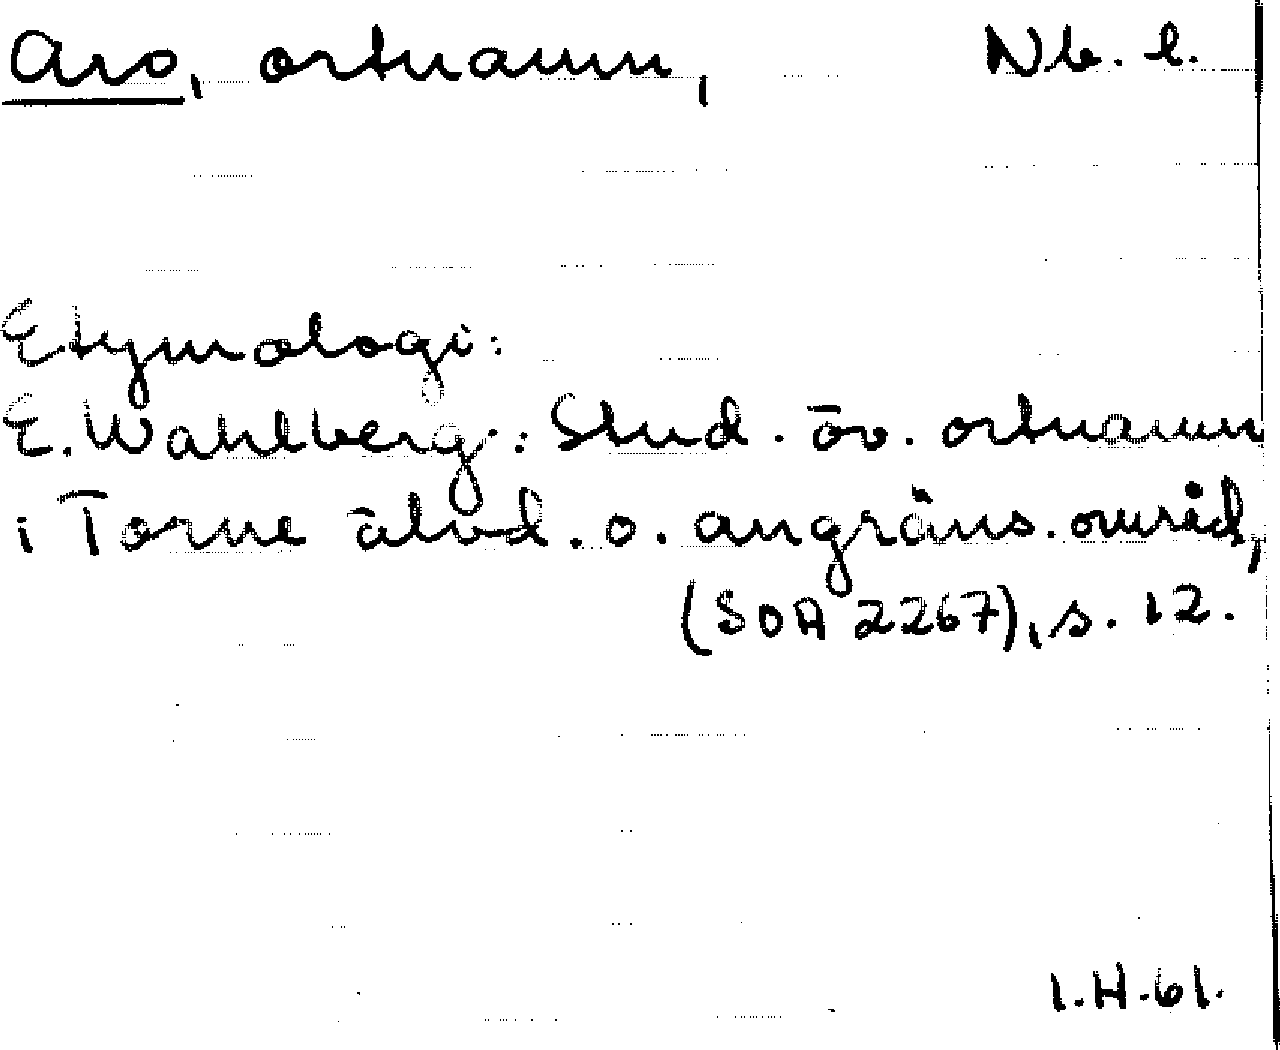 Aro, ortnamn, Nb. l.
Etymologi:
E. Wahlberg: Stud. öv. ortnamn
i Torne älvd. o. angräns. område,
(SOA 2267), s. 12.
I.H.61.